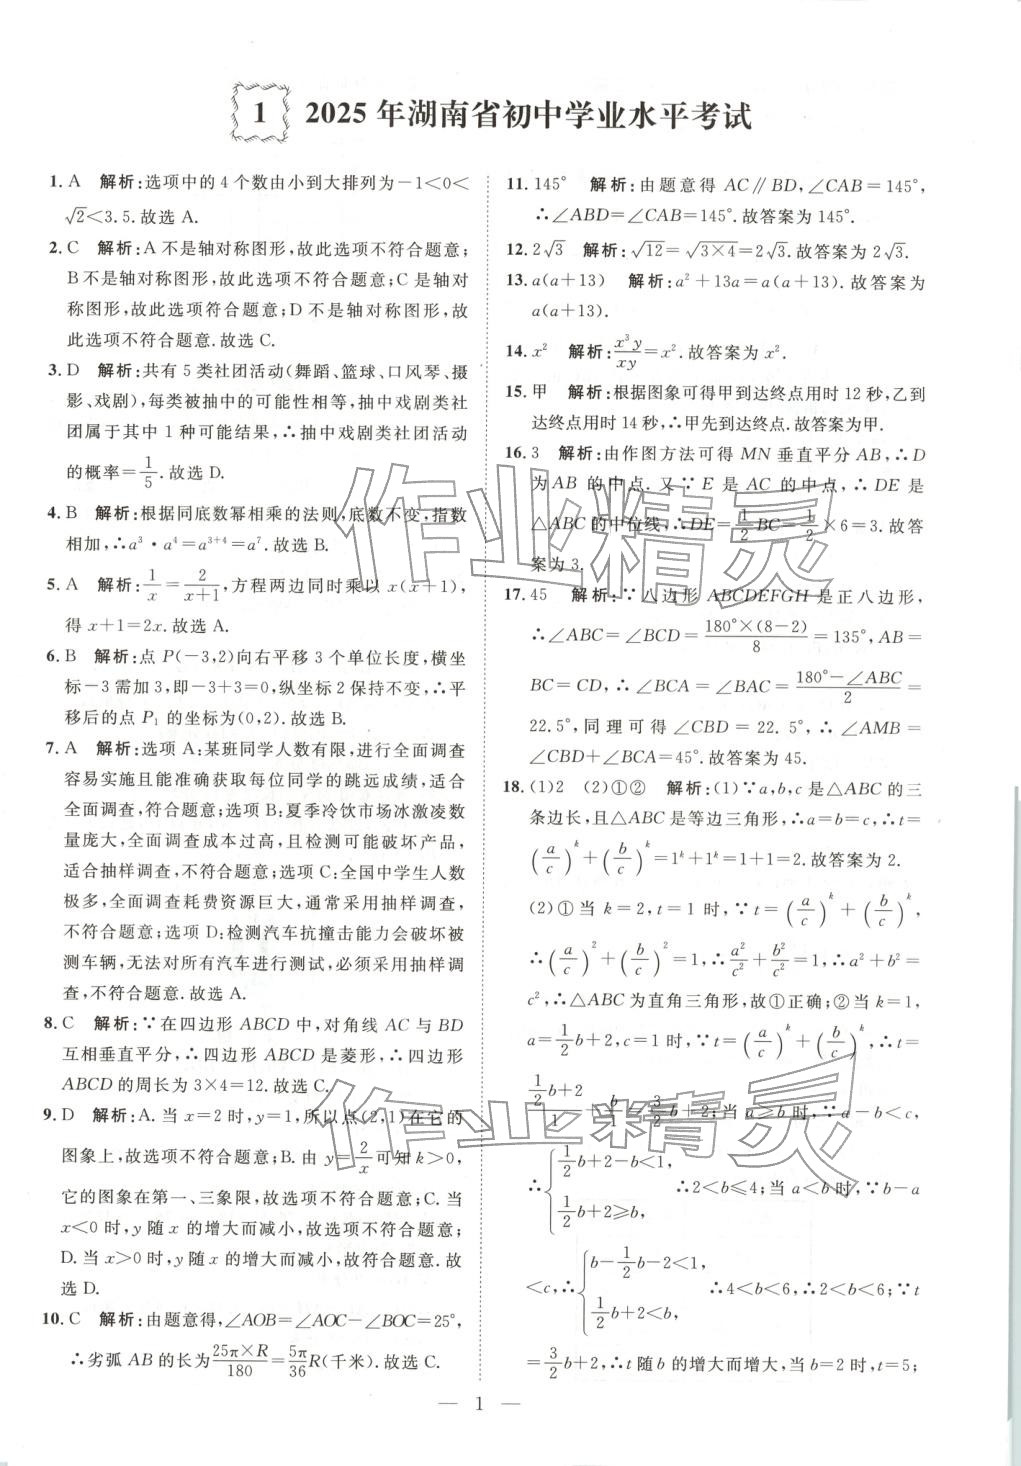 1 2025年湖南省初中学业水平考试
1. A 解析:选项中的4个数由小到大排列为-1<0<
√2<3.5.故选A.
2. C 解析:A不是轴对称图形,故此选项不符合题意;
B不是轴对称图形,故此选项不符合题意;C是轴对
称图形,故此选项符合题意;D不是轴对称图形,故
此选项不符合题意.故选C.
3. D 解析:共有5类社团活动(舞蹈、篮球、口风琴、摄
影、戏剧),每类被抽中的可能性相等,抽中戏剧类社
团属于其中1种可能结果,∴抽中戏剧类社团活动
的概率=1/5.故选D.
4. B 解析:根据同底数幂相乘的法则,底数不变,指数
相加,∴a³·a⁴=a³⁺⁴=a⁷.故选B.
5. A 解析:1/x=2/(x+1),方程两边同时乘以x(x+1),
得x+1=2x.故选A.
6. B 解析:点P(-3,2)向右平移3个单位长度,横坐
标-3需加3,即-3+3=0,纵坐标2保持不变,∴平
移后的点P₁的坐标为(0,2).故选B.
7. A 解析:选项A:某班同学人数有限,进行全面调查
容易实施且能准确获取每位同学的跳远成绩,适合
全面调查,符合题意;选项B:夏季冷饮市场冰激凌数
量庞大,全面调查成本过高,且检测可能破坏产品,
适合抽样调查,不符合题意;选项C:全国中学生人数
极多,全面调查耗费资源巨大,通常采用抽样调查,
不符合题意;选项D:检测汽车抗撞击能力会破坏被
测车辆,无法对所有汽车进行测试,必须采用抽样调
查,不符合题意.故选A.
8. C 解析:∵在四边形ABCD中,对角线AC与BD
互相垂直平分,∴四边形ABCD是菱形,∴四边形
ABCD的周长为3×4=12.故选C.
9. D 解析:A.当x=2时,y=1,所以点(2,1)在它的
图象上,故选项不符合题意;B.由y=2/x可知k>0,
它的图象在第一、三象限,故选项不符合题意;C.当
x<0时,y随x的增大而减小,故选项不符合题意;
D.当x>0时,y随x的增大而减小,故符合题意.故
选D.
10. C 解析:由题意得,∠AOB=∠AOC-∠BOC=25°,
∴劣弧AB的长为25π×R/180=5π/36R(千米).故选C.
11. 145° 解析:由题意得AC∥BD,∠CAB=145°,
∴∠ABD=∠CAB=145°.故答案为145°.
12. 2√3 解析:√12=√(3×4)=2√3.故答案为2√3.
13. a(a+13) 解析:a²+13a=a(a+13).故答案为
a(a+13).
14. x² 解析:x³y/xy=x².故答案为x².
15. 甲 解析:根据图象可得甲到达终点用时12秒,乙到
达终点用时14秒,∴甲先到达终点.故答案为甲.
16. 3 解析:由作图方法可得MN垂直平分AB,∴D
为AB的中点.又∵E是AC的中点,∴DE是
△ABC的中位线,∴DE=1/2BC=1/2×6=3.故答
案为3.
17. 45 解析:∵八边形ABCDEFGH是正八边形,
∴∠ABC=∠BCD=180°×(8-2)/8=135°,AB=
BC=CD,∴∠BCA=∠BAC=(180°-∠ABC)/2=
22.5°,同理可得∠CBD=22.5°,∴∠AMB=
∠CBD+∠BCA=45°.故答案为45.
18. (1)2 (2)①② 解析:(1)∵a,b,c是△ABC的三
条边长,且△ABC是等边三角形,∴a=b=c,∴t=
(a/c)ᵏ+(b/c)ᵏ=1ᵏ+1ᵏ=1+1=2.故答案为2.
(2)①当k=2,t=1时,∵t=(a/c)ᵏ+(b/c)ᵏ,
∴(a/c)²+(b/c)²=1,∴a²/c²+b²/c²=1,∴a²+b²=
c²,∴△ABC为直角三角形,故①正确;②当k=1,
a=1/2b+2,c=1时,∵t=(a/c)ᵏ+(b/c)ᵏ,∴t=
(1/2b+2)/1+b/1=3/2b+2;当a≥b时,∵a-b<c,
∴{1/2b+2-b<1, 1/2b+2≥b, ∴2<b≤4;当a<b时,∵b-a
<c,∴{b-1/2b-2<1, 1/2b+2<b, ∴4<b<6,∴2<b<6;∵t
=3/2b+2,∴t随b的增大而增大,当b=2时,t=5;
— 1 —
作业精灵
作业精灵